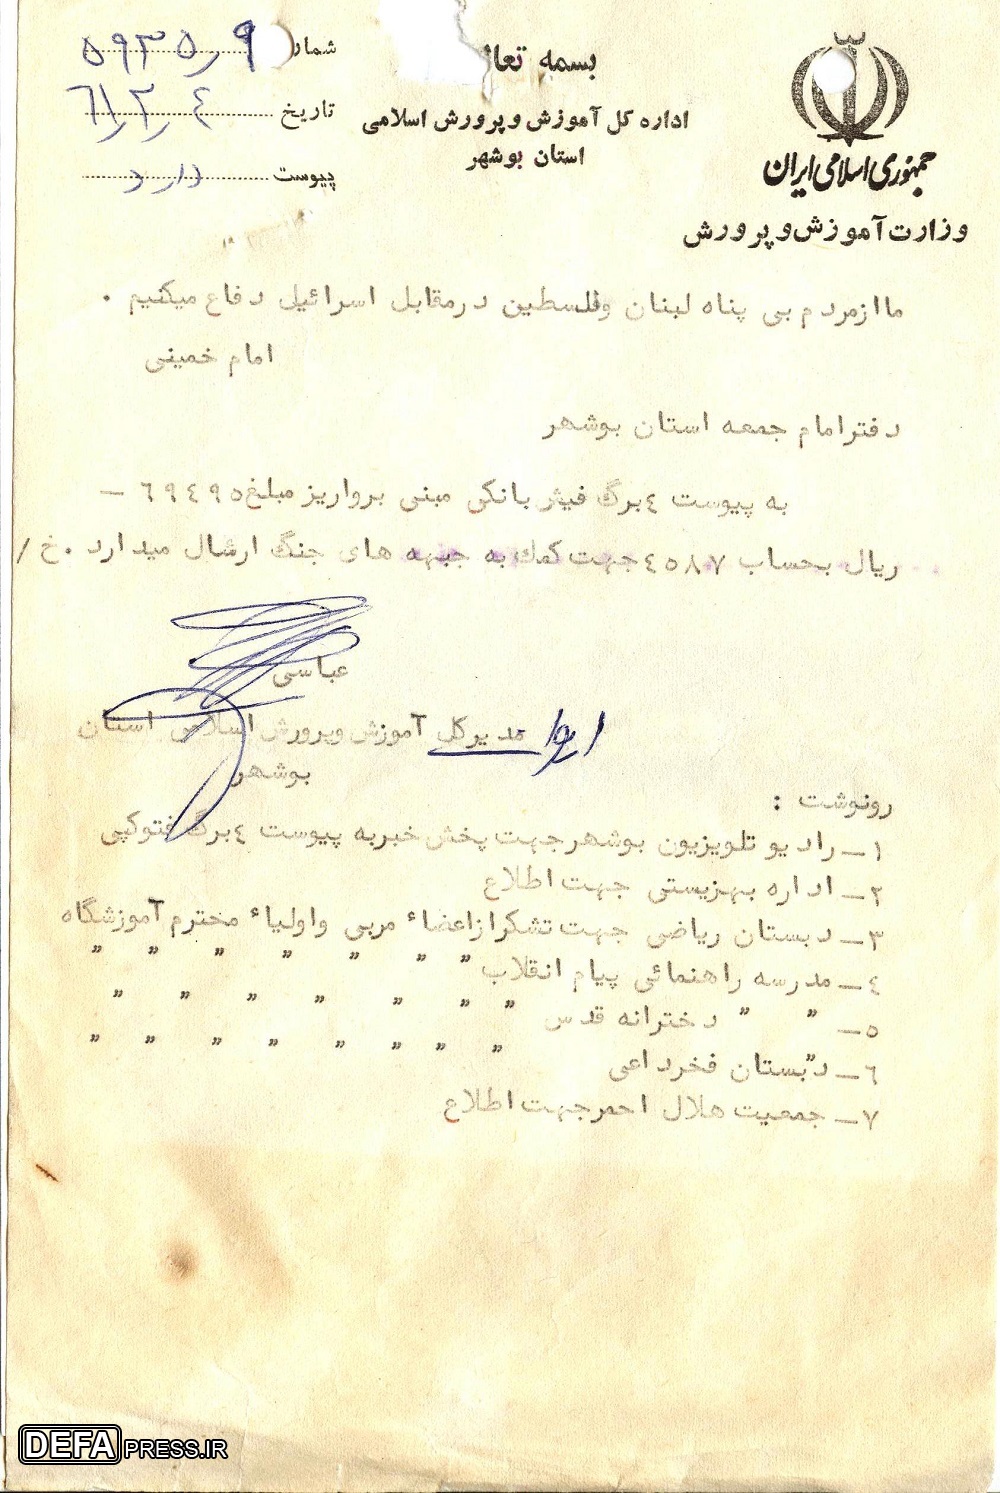 بسمه تعا
اداره کل آموزش و پرورش اسلامی
استان بوشهر
جمهوری اسلامی ایران
وزارت آموزش و پرورش
شمار ۵۹۳۵٫۹
تاریخ ٤٫۳٫٦۱
پیوست دارد
ما از مردم بی پناه لبنان وفلسطین درمقابل اسرائیل دفاع میکنیم .
امام خمینی
دفتر امام جمعه استان بوشهر
به پیوست ٤ برگ فیش بانکی مبنی بر واریز مبلغ ٦۹٤۹۵ –
ریال بحساب ٤۵۸۷ جهت کمک به جبهه های جنگ ارسال میدارد .خ /
عباسی
مدیر کل آموزش وپرورش اسلامی استان
بوشهر
رونوشت :
۱– رادیو تلویزیون بوشهر جهت پخش خبر به پیوست ٤ برگ فتوکپی
۲– اداره بهزیستی جهت اطلاع
۳– دبستان ریاضی جهت تشکر از اعضاء مربی و اولیاء محترم آموزشگاه
٤– مدرسه راهنمائی پیام انقلاب " " " " " " "
۵– " " دخترانه قدس " " " " " " "
٦– دبستان فخر داعی " " " " " " " "
۷– جمعیت هلال احمر جهت اطلاع
DEFAPRESS.IR